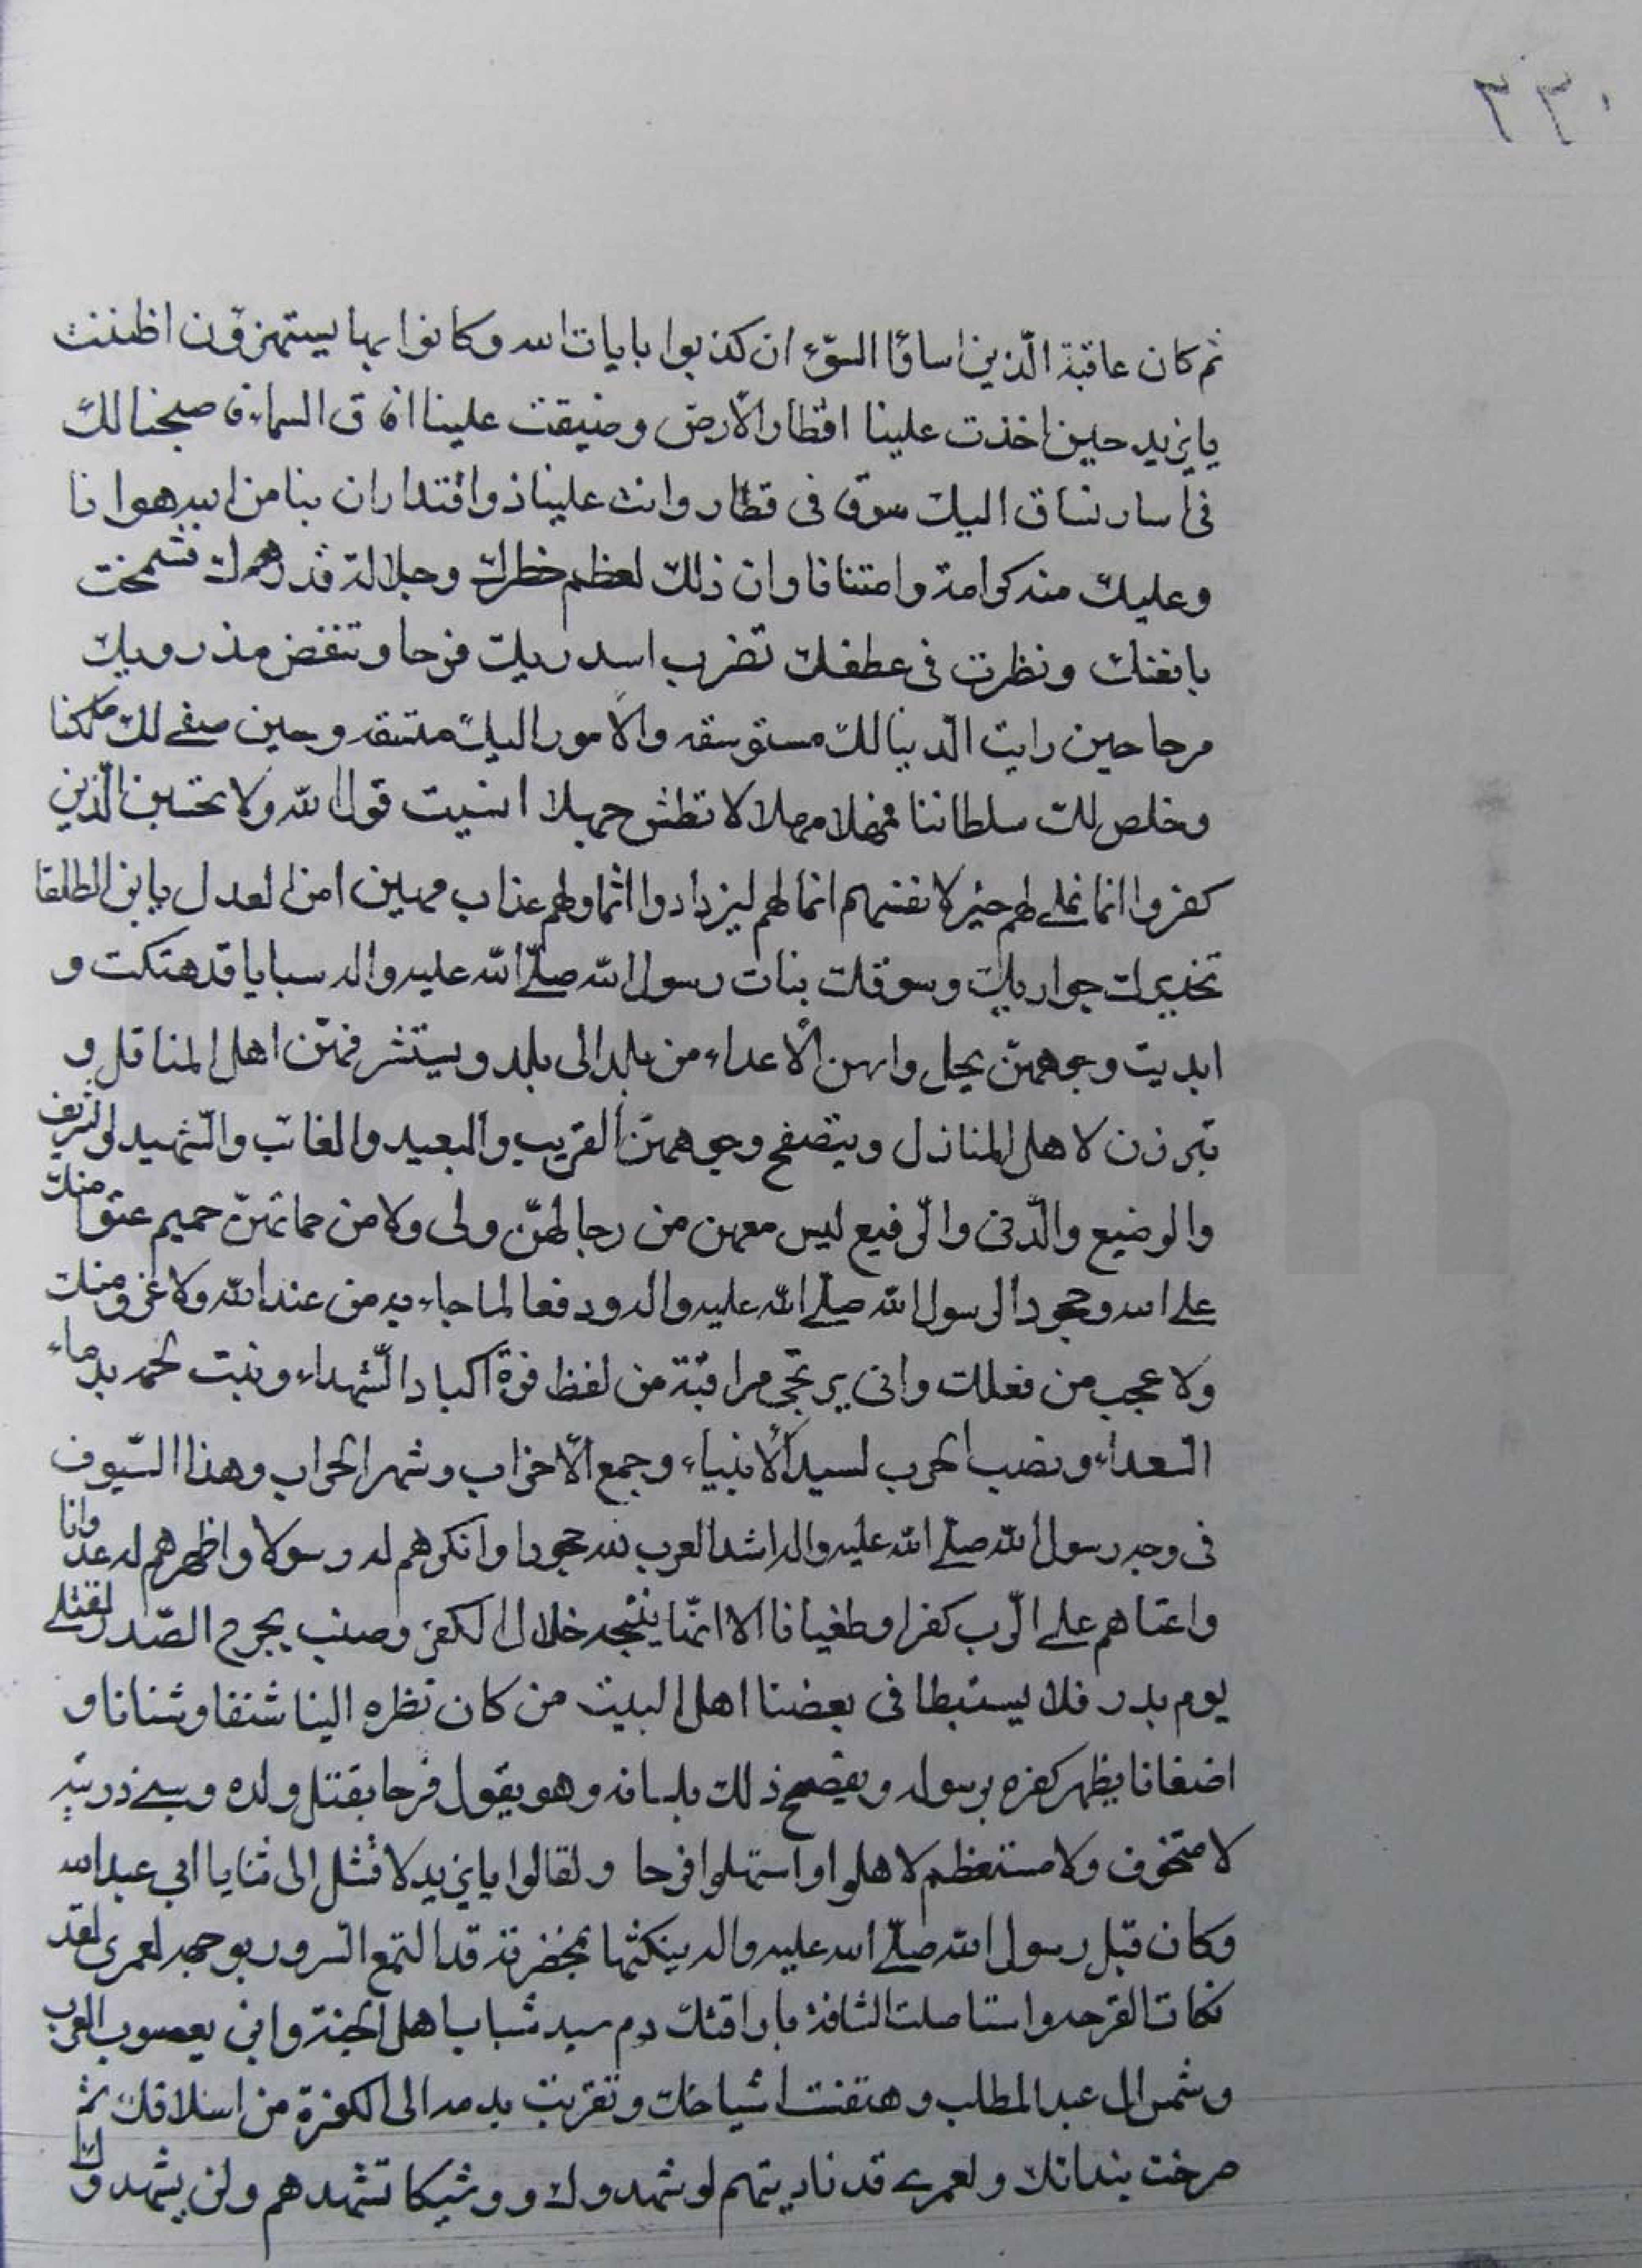 ٢٣٠
ثم كان عاقبة الّذين اساؤا السوّء ان كذبوا بايات الله وكانوا بها يستهزؤن اظننت
يا يزيد حين اخذت علينا اقطار الأرض وضيقت علينا افاق السماء فاصبحنا لك
فى اسار نساق اليك سوق فى قطار وانت علينا ذو اقتدار ان بنا من الله هوانا
وعليك منه كرامة وامتنانا وان ذلك لعظم خطرك وجلالة قدرك فشمخت
بانفك ونظرت فى عطفك تضرب اسدريك فرحا وتنفض مذرويك
مرحا حين رايت الدنيا لك مستوسقه والامور اليك متسقه وحين صفى لك ملكنا
وخلص لك سلطاننا فمهلا مهلا لا تطش جهلا انسيت قول الله ولا يحسبن الّذين
كفروا انما نملى لهم خير لانفسهم انما لهم ليزدادوا اثما ولهم عذاب مهين امن العدل يا بن الطلقا
تخديرك جواريك وسوقك بنات رسول الله صلّى الله عليه واله سبايا قد هتكت و
ابديت وجوههنّ يحد وابهن الأعداء من بلد الى بلد ويستشرفهنّ اهل المناقل و
تبرزن لاهل المنازل ويتصفح وجوههنّ القريب والبعيد والغائب والشهيد والشريف
والوضيع والدّنى والرّفيع ليس معهن من رجالهنّ ولى ولا من حماتهنّ حميم عتوا منك
على الله وجحودا لرسول الله صلّى الله عليه واله ودفعا لما جاء به من عند الله ولا غرو منك
ولا عجب من فعلك وانى يرتجى مراقبة من لفظ فوة اكباد الشّهداء ونبت لحمه بدماء
السّعداء ونصب الحرب لسيد الأنبياء وجمع الأحزاب وشهر الحراب وهذا السّيوف
فى وجه رسول الله صلّى الله عليه واله اشد العرب لله جحودا وانكرهم له رسولا واظهرهم له عدوانا
واعتاهم على الرّب كفرا وطغيانا الا انّها نتيجه خلال الكفر وضب يجرجر الصّدر لقتلى
يوم بدر فلا يستبطا فى بعضنا اهل البيت من كان نظره الينا شنفا وشنانا و
اضغانا يظهر كفره برسوله ويفصح ذلك بلسانه وهو يقول فرحا بقتل ولده وسبى ذريته
لا متخوف ولا مستعظم لاهلوا واستهلوا فرحا ولقالوا يا يزيد لا تشل الى ثنايا ابى عبد الله
وكان قبل رسول الله صلّى الله عليه واله ينكثها بمخضرته قد التمع السّرور بوجهه لعمرى لقد
نكات القرحه واستاصلت الشافة باراقتك دم سيد شباب اهل الجنة وابن يعسوب العرب
وشمس ال عبد المطلب وهتفت اشياخك وتقربت بدمه الى الكفرة من اسلافك ثم
صرخت بندائك ولعمرى قد ناديتهم لو شهدوك ووشيكا تشهدهم ولن يشهدوك